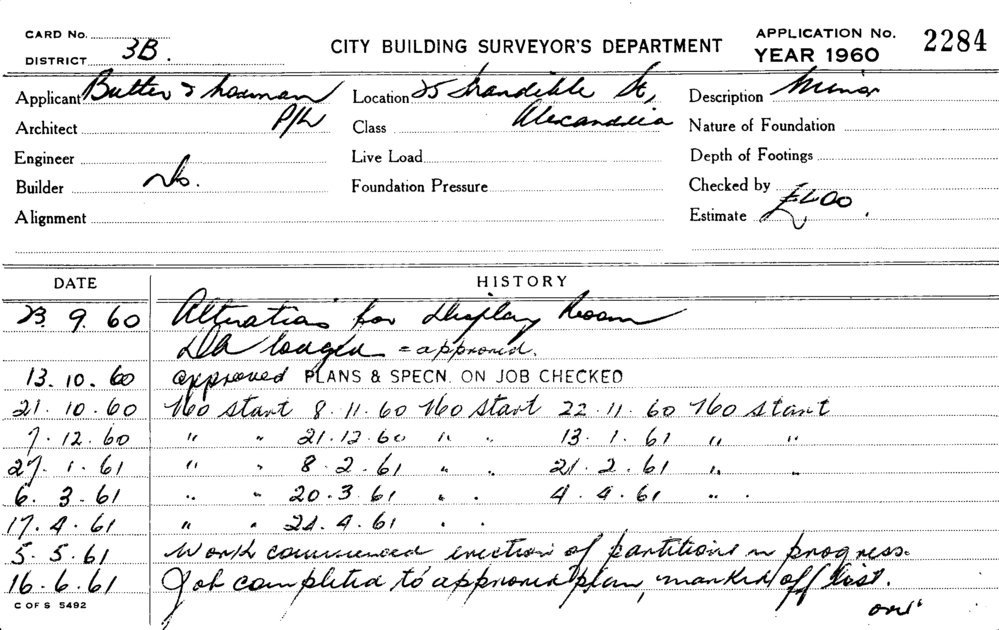 CARD No.
DISTRICT 3B.
CITY BUILDING SURVEYOR'S DEPARTMENT
APPLICATION No. 2284
YEAR 1960
Applicant Butler & Noxman P/L
Architect
Engineer
Builder Do.
Alignment
Location 25 Mandible St, Alexandria
Class
Live Load
Foundation Pressure
Description Minor
Nature of Foundation
Depth of Footings
Checked by
Estimate £400
DATE HISTORY
23. 9. 60 Alterations for display Room
DA lodged = approved.
13. 10. 60 approved PLANS & SPECN. ON JOB CHECKED
21. 10. 60 No start 8. 11. 60 No start 22. 11. 60 No start
7. 12. 60 " " 21. 12. 60 " " 13. 1. 61 " "
27. 1. 61 " " 8. 2. 61 " " 21. 2. 61 " "
6. 3. 61 " " 20. 3. 61 " " 4. 4. 61 " "
17. 4. 61 " " 24. 4. 61 " "
5. 5. 61 Work commenced erection of partitions in progress.
16. 6. 61 Job completed to approved plan, marked off list.
C OF S 5492